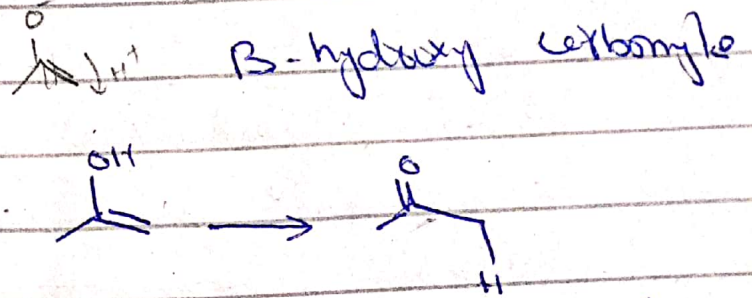 O
H⁺ B-hydroxy carbonyle
OH O
H